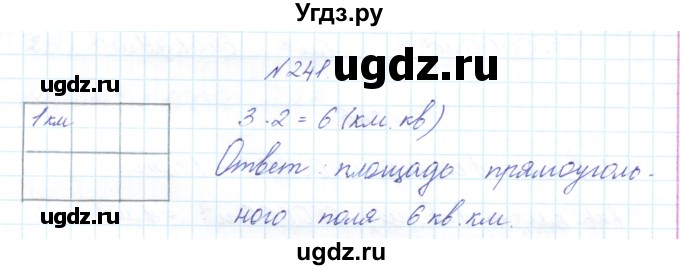 Угдз.ру
№241.
ugdz.ru
ugdz.ru
1 км
3·2=6 (км. кв)
Ответ: площадь прямоуголь-
ного поля 6 кв. км.
ugdz.ru
ugdz.ru